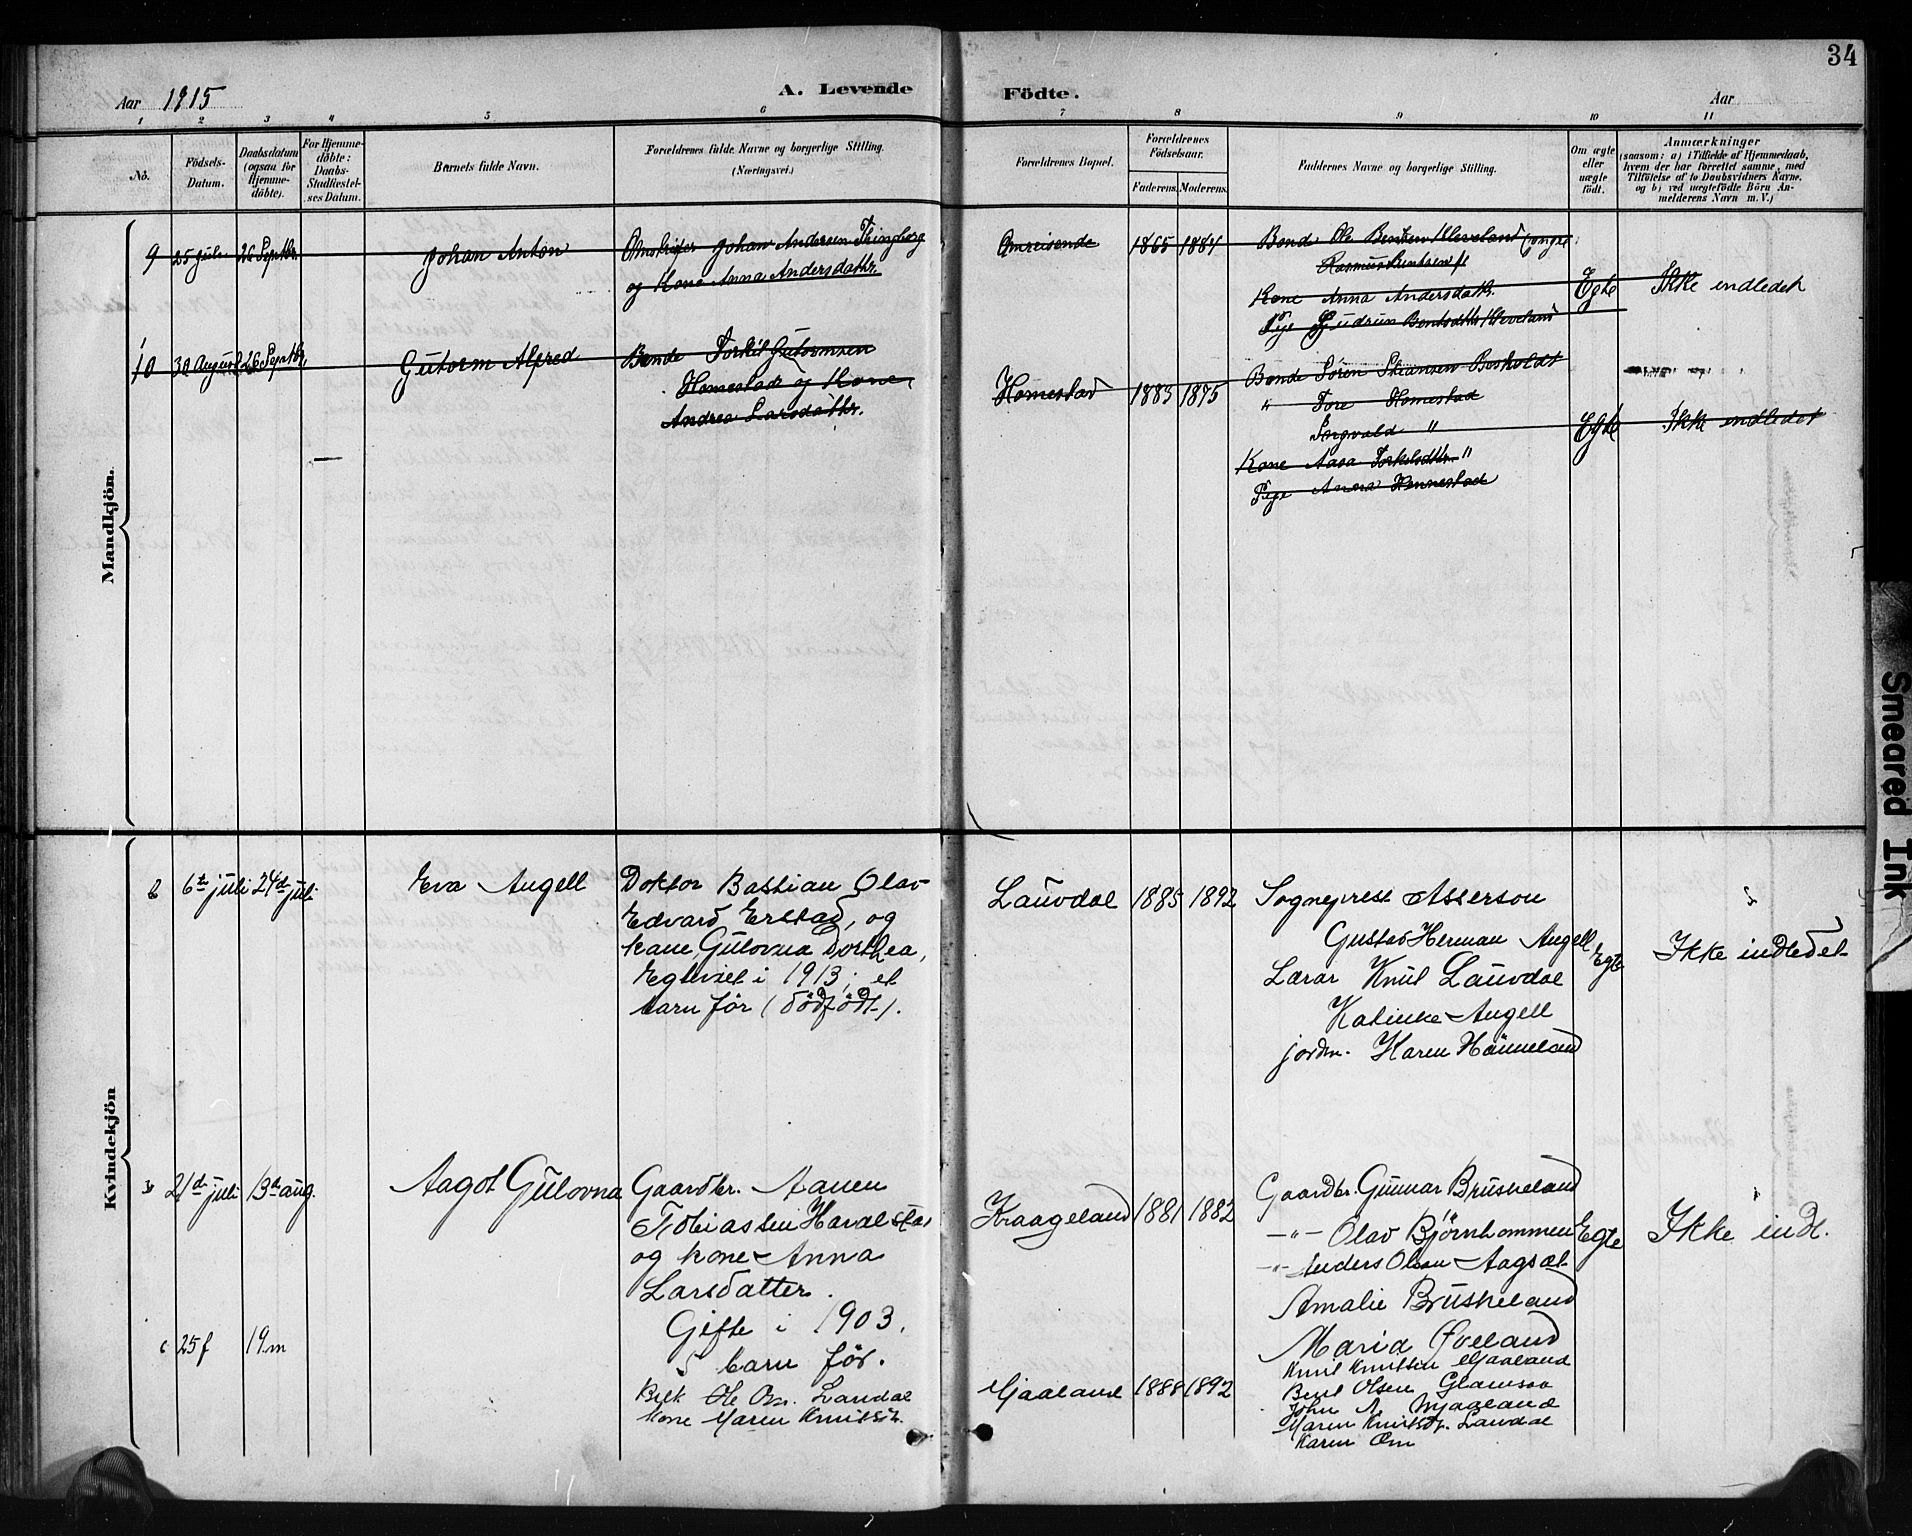 34
Aar 1915
A. Levende Födte.
Aar
1 2 3 4 5 6 7 8 9 10 11
No.
Födsels-
Datum.
Daabsdatum
(ogsaa for
Hjemme-
döbte).
For Hjemme-
döbte:
Daabs-
Stadfæstel-
ses Datum.
Barnets fulde Navn.
Forældrenes fulde Navne og borgerlige Stilling.
(Næringsvei.)
Forældrenes Bopæl.
Forældrenes
Födselsaar.
Faderens. Moderens.
Faddernes Navne og borgerlige Stilling.
Om ægte
eller
uægte
födt.
Anmærkninger
(saasom: a) i Tilfælde af Hjemmedaab,
hvem der har forrettet samme, med
Tilföielse af to Daabsvidners Navne,
og b) ved uægtefödte Börn An-
melderens Navn m. V.)
Mandkjön.
9 25 juli 26 Septbr. Johan Anton
Johan Andersen Thingborg
og Kone Anna Andersdattr.
Omreisende 1865 1884
Bonde Ole Bentsen Kleveland
Rasmus Bentsen
Kone Anna Andersdattr.
Pige Gudrun Bentsdattr Kleveland
Egte Ikke endledet
10 30 August 26 Septbr. Gutorm Alfred
Bonde Torkil Gutormsen
Homestad og Kone
Andrea Larsdattr.
Homestad 1883 1875
Bonde Sören
" Tore Homestad
Torgvald "
Kone Aasa Torkilsdtr. "
Pige Anna Homestad
Egte Ikke endledet
Kvindekjön
6te juli 24de juli Eva Angell
Doktor Bastian Olav
Edvard Erstad, og
kone Gulovna Dorthea,
Egteviet i 1913; et
barn för (dödfödt).
Lauvdal 1885 1892
Sogneprest Asserson
Gustav Herman Angell
Lærar Knut Lauvdal
Kalinke Angell
jordm. Karen Hönneland
Egte Ikke indledet
21de juli 13de aug. Aagot Gulovna
Gaardbr. Aanen
Tobiassen Haraldstad
og kone Anna
Larsdatter.
Gifte i 1903.
5 barn för.
Kraageland 1881 1882
Gaardbr. Gunnar Bruskeland
-"- Olav Björnhommen
-"- Anders Olsen Aagsæt
Amalie Bruskeland
Maria Öveland
Egte Ikke indl.
25 f 19 m
Ole Om. Lauvdal
kone Maren Knutsdtr.
Mjaaland 1888 1892
Knut Knutsen Mjaaland
Bent Olsen Glamsaa
John A. Mjaaland
Maren Knutsdtr. Lauvdal
Karen Om
Smeared Ink